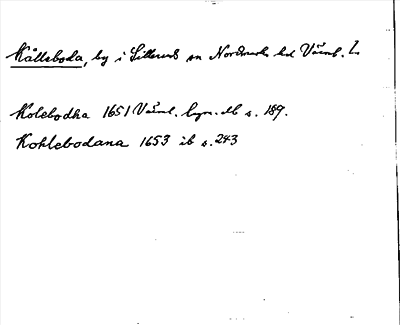 Kålleboda, by i Sillerud sn Nordmarks hd Värml. L.
Kolebodha 1651 Värml. byn. db s. 189.
Kohlebodana 1653 ib s. 243